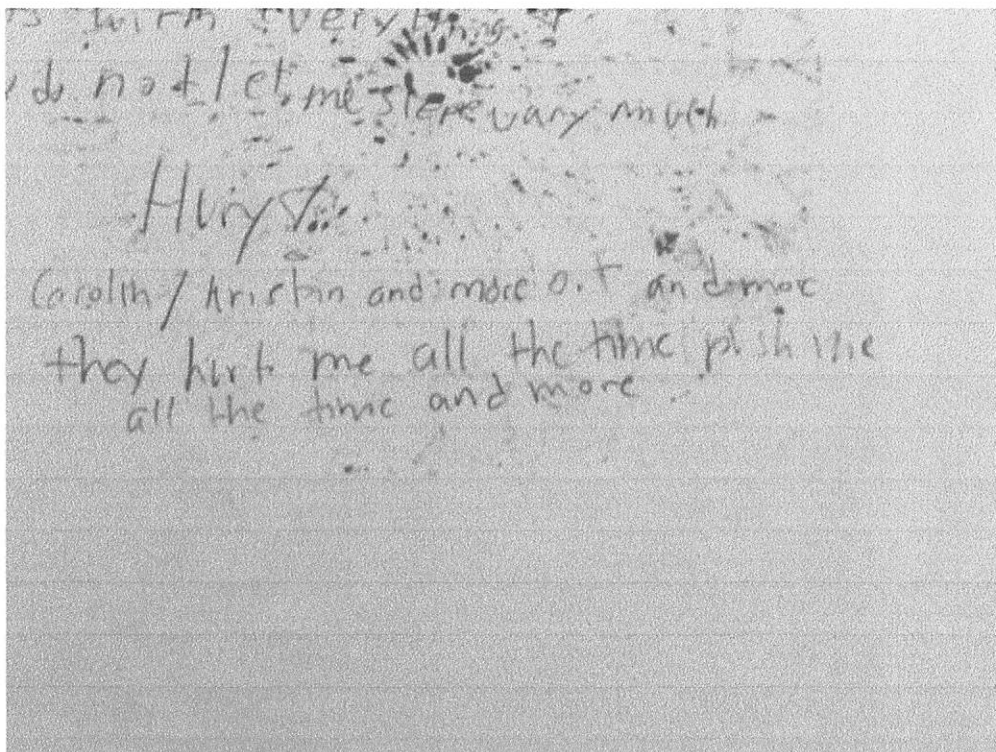 with every thing.
do not let me slere vary much
Hury
Carolin / Kristin and more o.t and more
they hurt me all the time push me
all the time and more